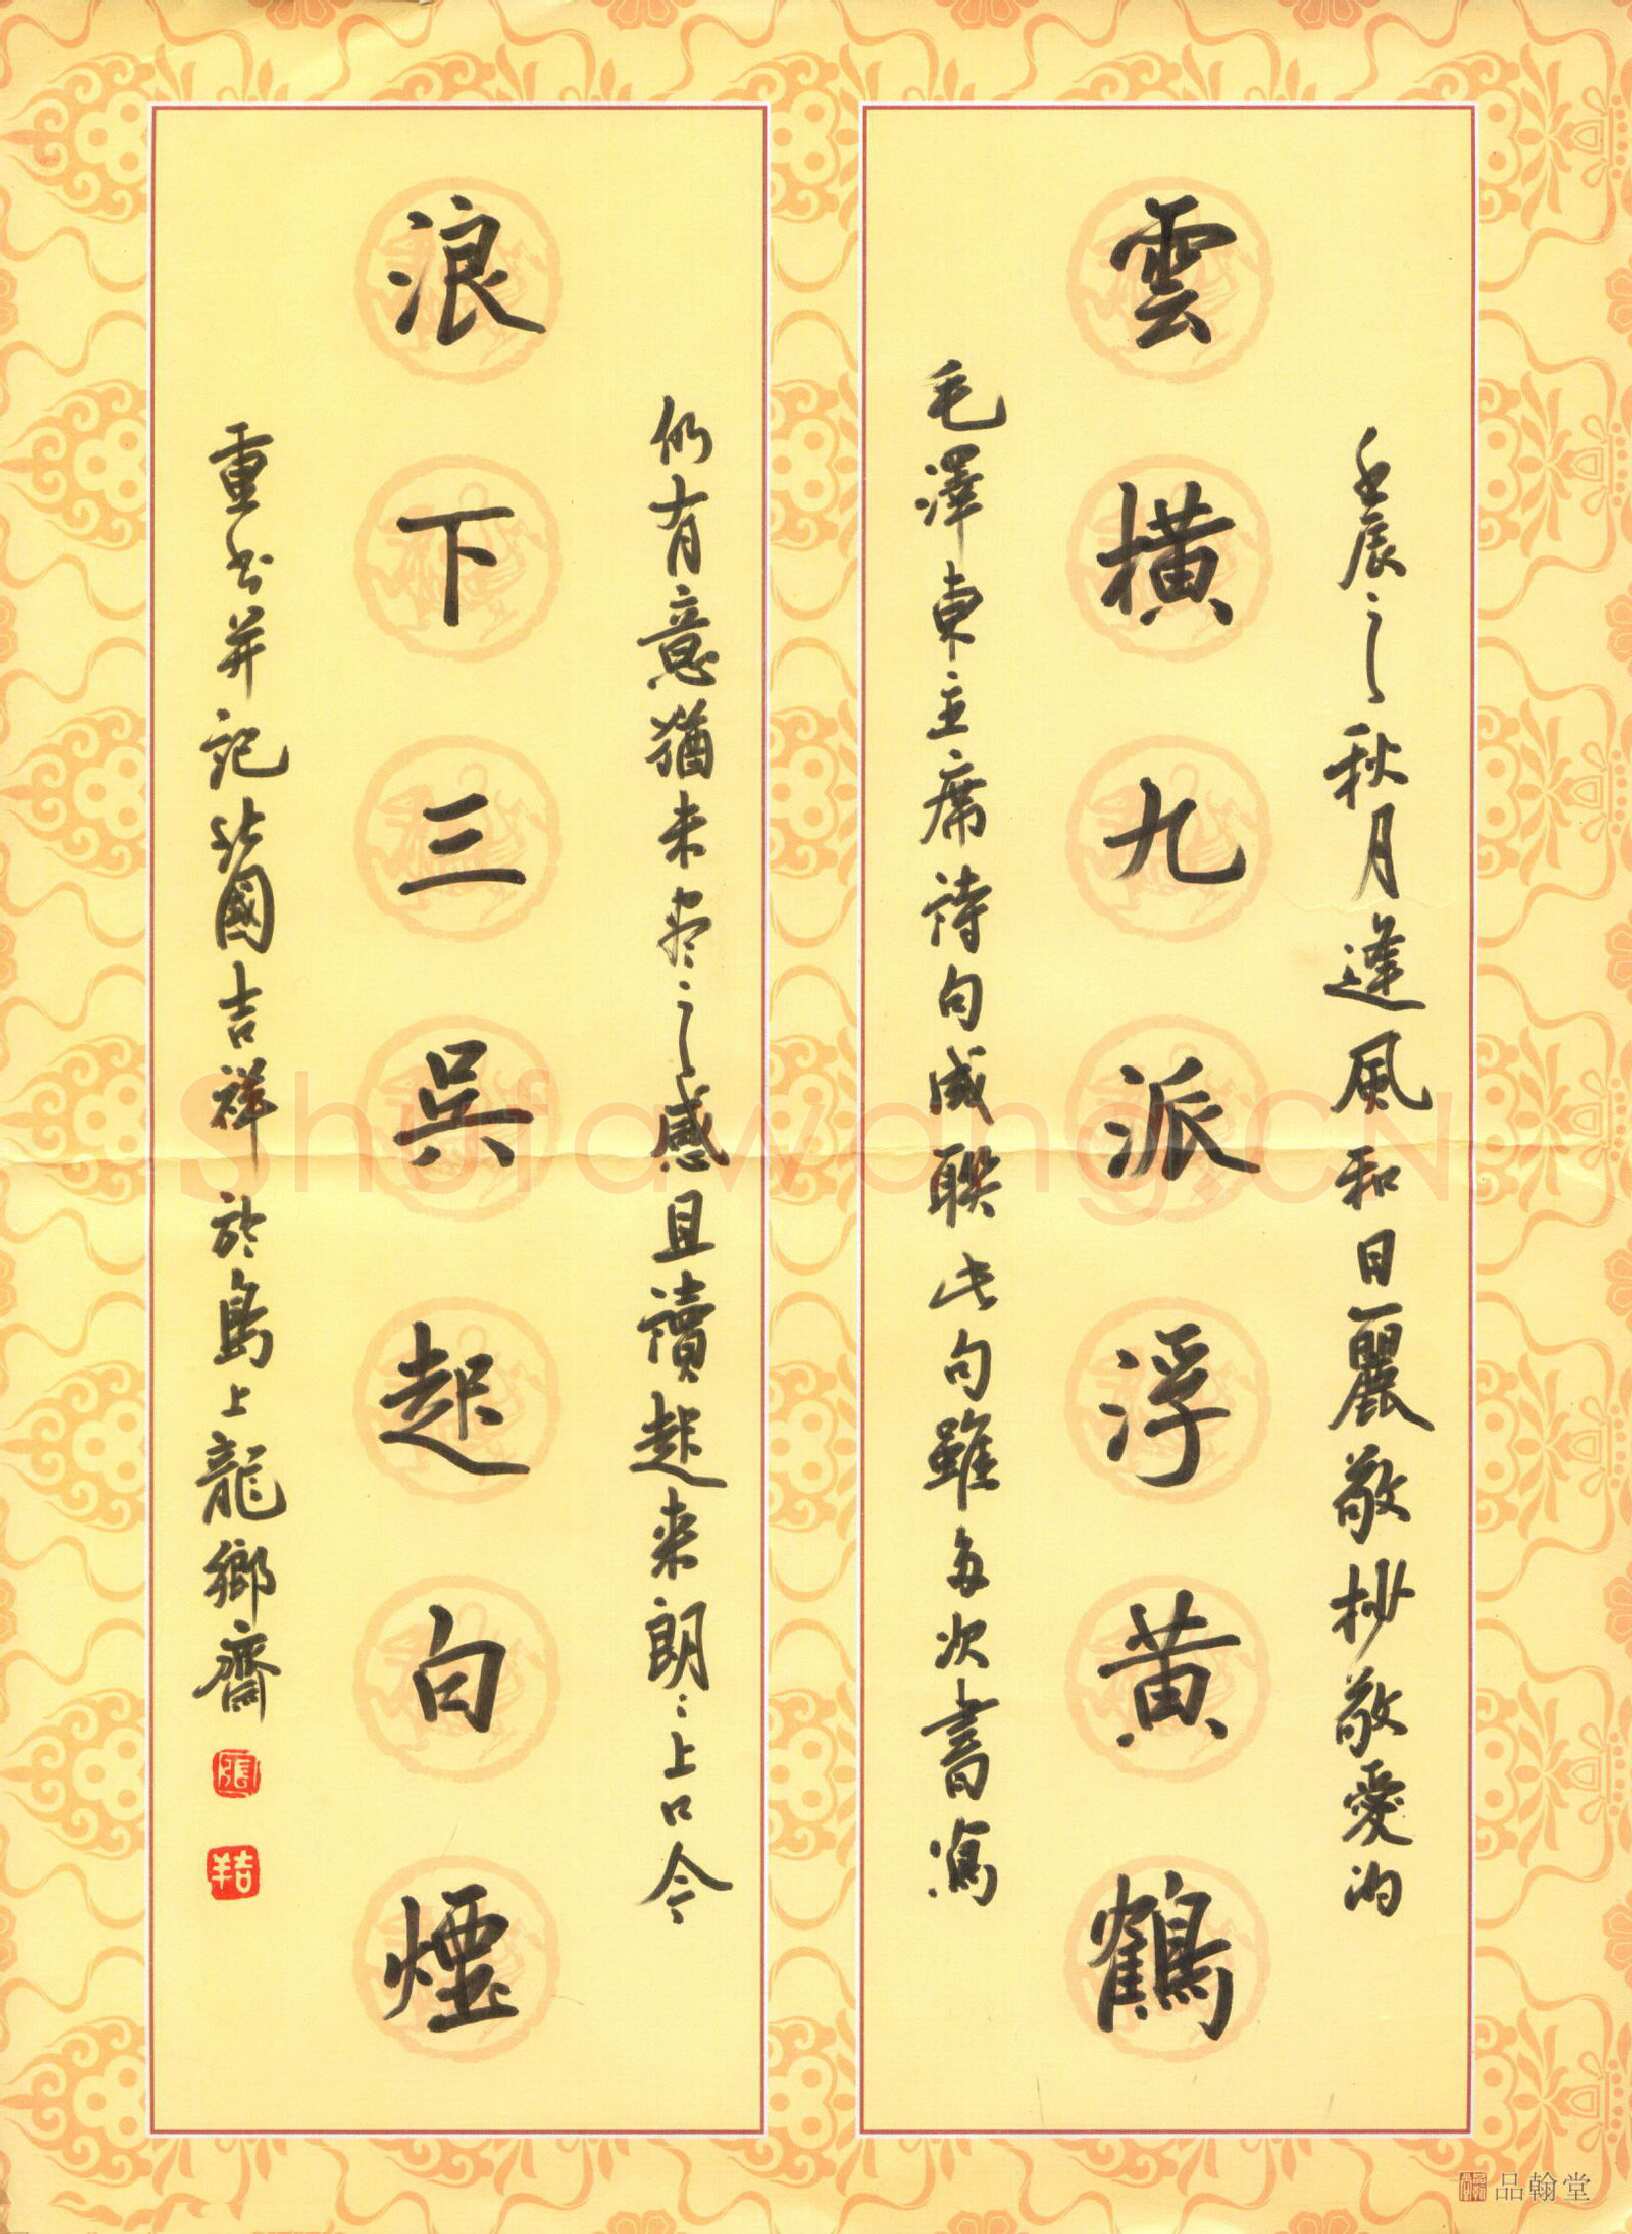 壬辰之秋月逢風和日麗敬抄敬愛的
雲橫九派浮黃鶴
毛澤東主席詩句成聯此句雖多次書寫
仍有意猶未尽之感且讀起来朗〻上口今
浪下三吳起白煙
重书并記北國吉祥於島上龍鄉齋
張
吉羊
ShufawangCN
品翰堂